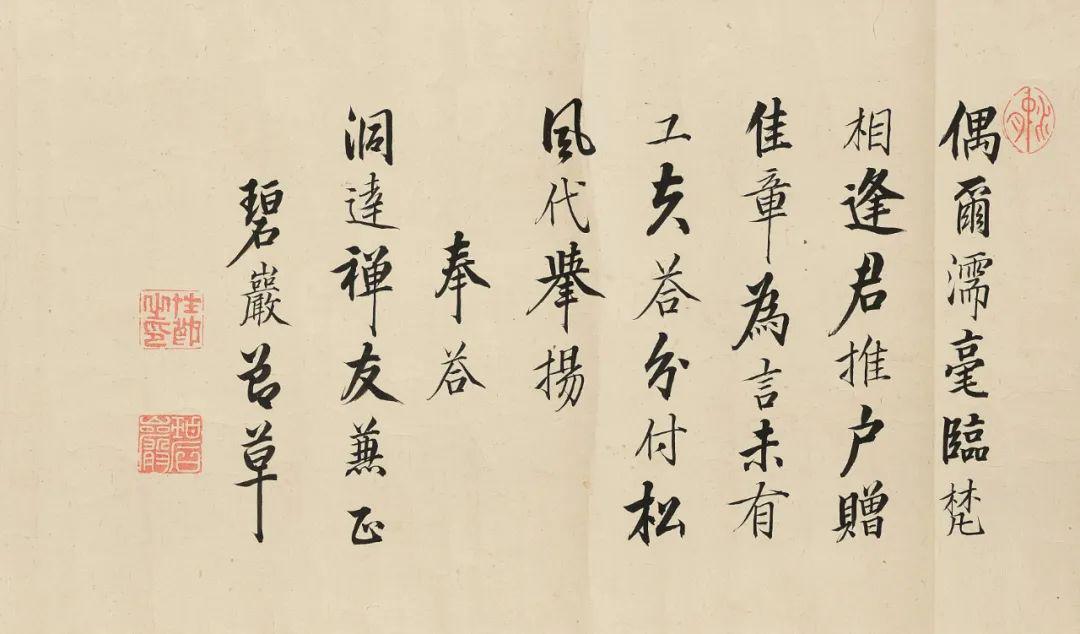 偶爾濡毫臨梵
相逢君推户贈
佳章為言未有
工夫荅分付松
風代舉揚
奉荅
洞達禅友兼正
碧巖草
碧巖